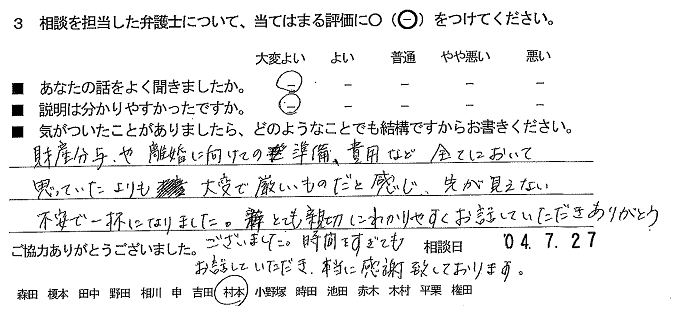 3 相談を担当した弁護士について、当てはまる評価に○(⊖)をつけてください。
大変よい よい 普通 やや悪い 悪い
■ あなたの話をよく聞きましたか。 － － － － －
■ 説明は分かりやすかったですか。 － － － － －
■ 気がついたことがありましたら、どのようなことでも結構ですからお書きください。
財産分与、や 離婚に向けての準備、費用など 全てにおいて
思っていたよりも 大変で厳しいものだと感じ、先が見えない
不安で一杯になりました。とても親切にわかりやすくお話していただきありがとう
ございました。時間をすぎても
ご協力ありがとうございました。 相談日 '04.7.27
お話していただき、本当に感謝致しております。
森田 榎本 田中 野田 相川 申 吉田 村本 小野塚 時田 池田 赤木 木村 平栗 権田